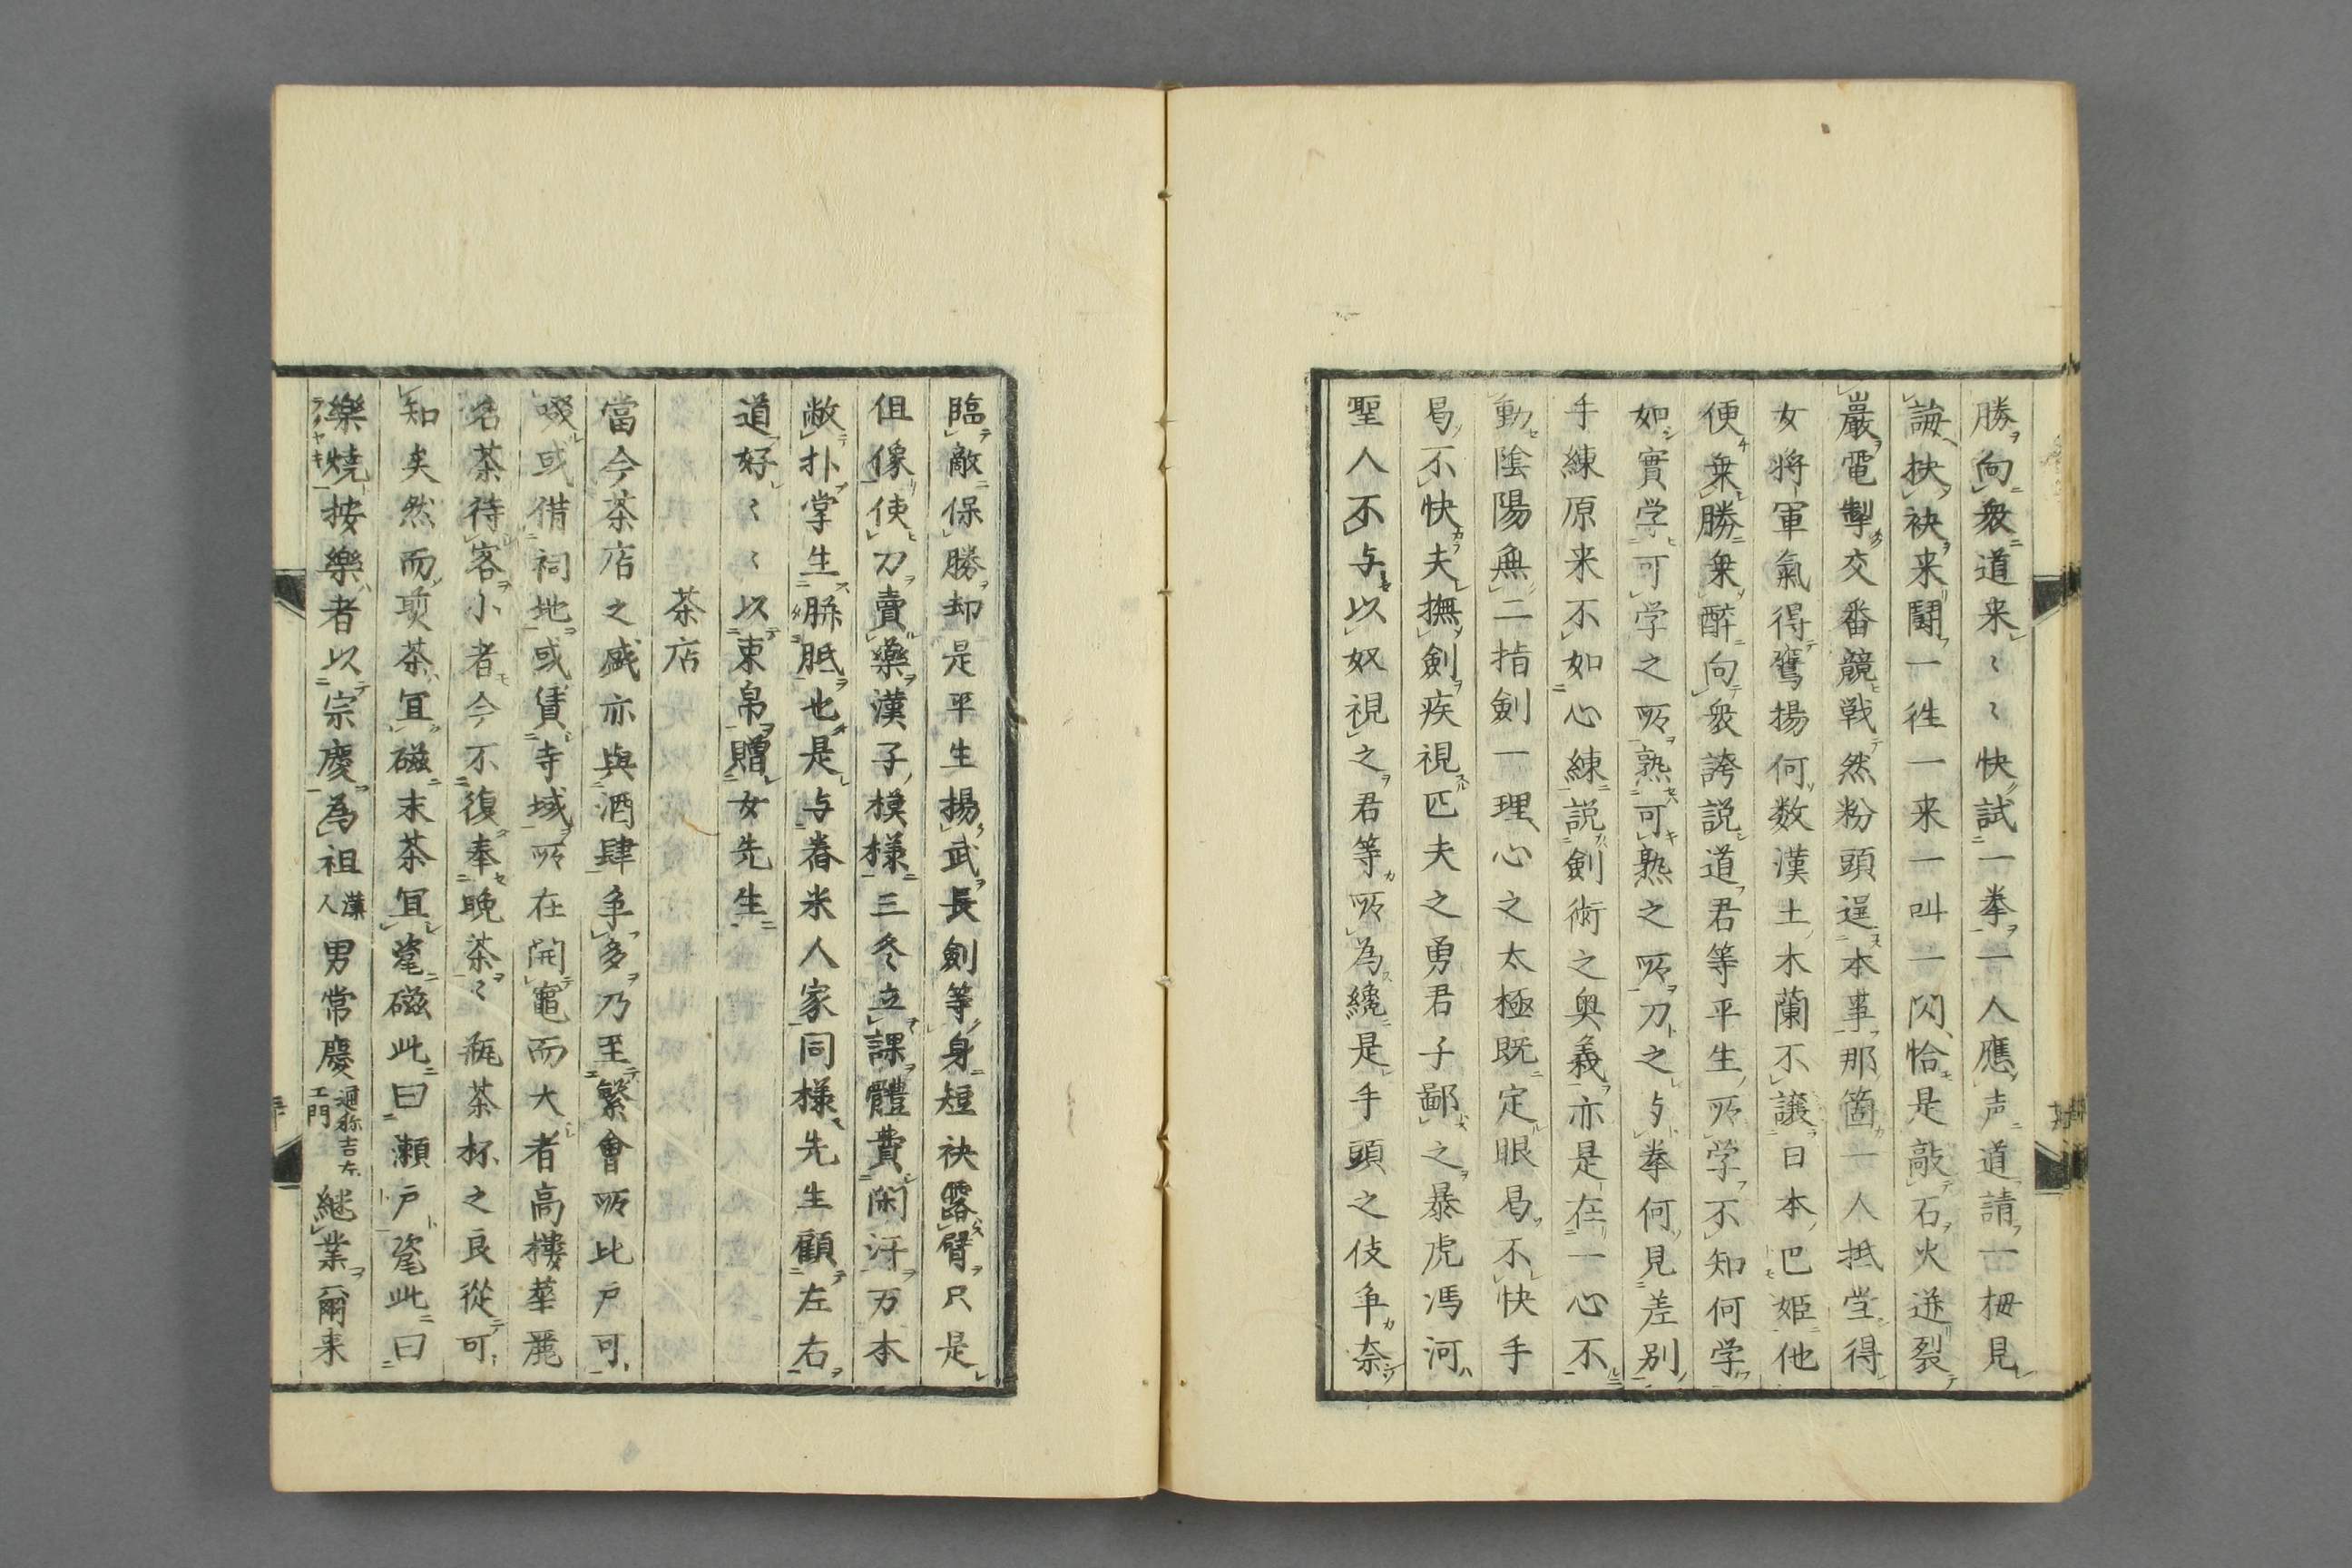 勝向衆道来〻〻快試一拳一人應声道請一拇見
論抉袂来闘一往一来一叫二閃恰是敲石火迸裂
巖電掣交番競戦然粉頭逞本事那箇一人抵当得
女将軍氣得鷹揚何数漢土木蘭不譲日本巴姫他
便乗勝乗酔向衆誇説道君等平生所学不知何学
如實学可学之所熟可熟之所刀之与拳何見差別
手練原来不如心練説劍術之奥義亦是在一心不
動陰陽無二指劍一理心之太極既定眼曷不快手
曷不快夫撫劍疾視匹夫之勇君子鄙之暴虎馮河
聖人不与以奴視之君等所為纔是手頭之伎争奈
臨敵保勝却是平生揚武長劍等身短袂露臂只是
伹像使刀賣藥漢子模様三冬立課體費閑汗万本
敝扑掌生胼胝也是与舂米人家同様先生顧左右
道好〻〻以束帛贈女先生
茶店
當今茶店之盛亦與酒肆争多乃至繁會所比戸可
啜或借祠地或賃寺域所在開竈而大者高樓華麗
名茶待客小者今不復奉晩茶〻瓶茶杯之良從可
知矣然而煎茶宜磁末茶宜窰磁此曰瀬戸窰此曰
樂燒按樂者以宗慶為祖漢人男常慶通称吉左エ門継業爾来